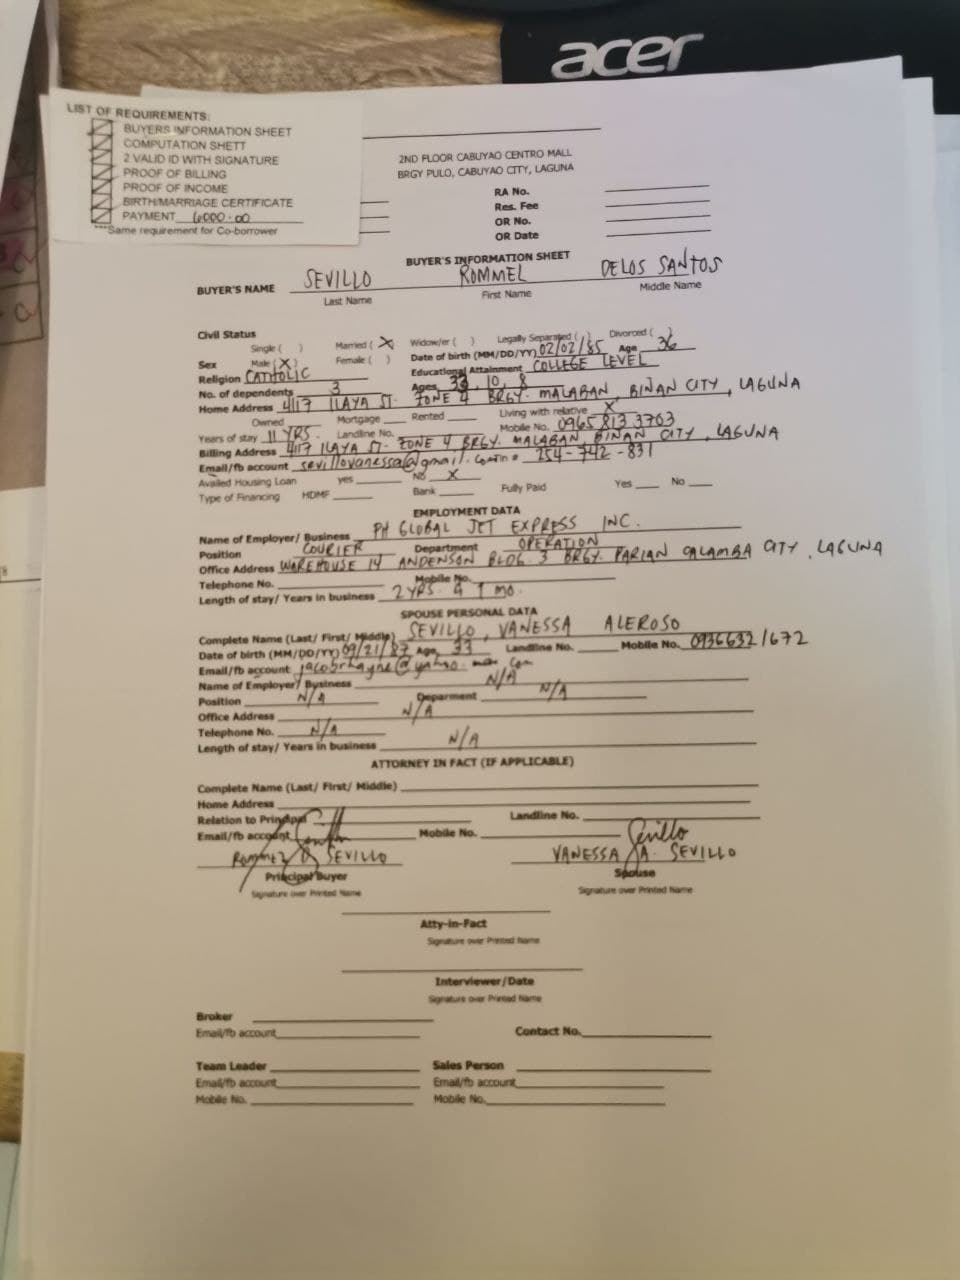 acer
LIST OF REQUIREMENTS:
BUYERS INFORMATION SHEET
COMPUTATION SHETT
2 VALID ID WITH SIGNATURE
PROOF OF BILLING
PROOF OF INCOME
BIRTH/MARRIAGE CERTIFICATE
PAYMENT 6000.00
***Same requirement for Co-borrower
2ND FLOOR CABUYAO CENTRO MALL
BRGY PULO, CABUYAO CITY, LAGUNA
RA No.
Res. Fee
OR No.
OR Date
BUYER'S INFORMATION SHEET
BUYER'S NAME SEVILLO ROMMEL DELOS SANTOS
Last Name First Name Middle Name
Civil Status
Single ( ) Married ( X Widow/er ( ) Legally Separated ( ) Divorced ( )
Sex Male ( X ) Female ( ) Date of birth (MM/DD/YY) 02/02/85 Age 36
Religion CATHOLIC Educational Attainment COLLEGE LEVEL
No. of dependents 3 Ages 10, 8
Home Address 4117 ILAYA ST. ZONE 4 BRGY. MALABAN, BINAN CITY, LAGUNA
Owned Mortgage Rented Living with relative X
Years of stay 11 YRS. Landline No. Mobile No. 0965 813 3703
Billing Address 4117 ILAYA ST. ZONE 4 BRGY. MALABAN, BINAN CITY, LAGUNA
Email/fb account sevillovanessa@gmail.com # 254-742-831
Availed Housing Loan yes No X
Type of Financing HDMF Bank Fully Paid Yes No
EMPLOYMENT DATA
Name of Employer/ Business PH GLOBAL JET EXPRESS INC.
Position COURIER Department OPERATION
Office Address WAREHOUSE 14 ANDENSON BLDG 3 BRGY. PARIAN CALAMBA CITY, LAGUNA
Telephone No. Mobile No.
Length of stay/ Years in business 2 YRS. 1 MO.
SPOUSE PERSONAL DATA
Complete Name (Last/ First/ Middle) SEVILLO, VANESSA ALEROSO
Date of birth (MM/DD/YY) 09/21/87 Age 33 Landline No. Mobile No. 09366321672
Email/fb account
Name of Employer/ Business N/A
Position N/A Deparment N/A
Office Address N/A
Telephone No. N/A
Length of stay/ Years in business N/A
ATTORNEY IN FACT (IF APPLICABLE)
Complete Name (Last/ First/ Middle)
Home Address
Relation to Principal Landline No.
Email/fb account Mobile No. Sevillo
Rommel D. SEVILLO VANESSA A. SEVILLO
Principal Buyer Spouse
Signature over Printed Name Signature over Printed Name
Atty-in-Fact
Signature over Printed Name
Interviewer/Date
Signature over Printed Name
Broker
Email/fb account Contact No.
Team Leader Sales Person
Email/fb account Email/fb account
Mobile No. Mobile No.